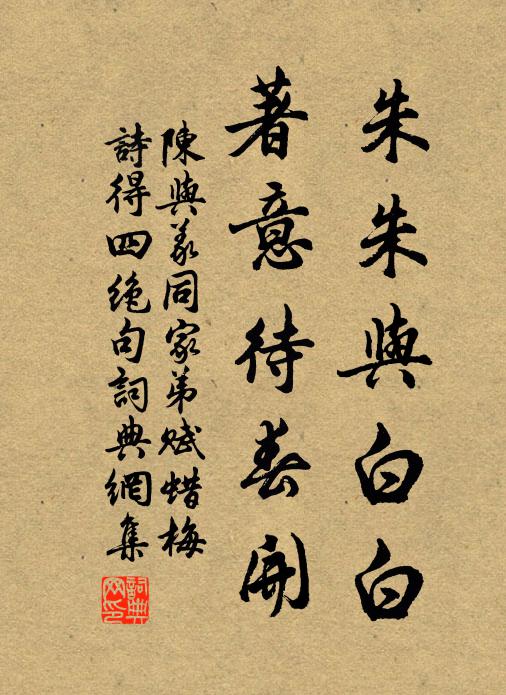 朱朱與白白
著意待春開
陳與義同家弟賦蜡梅
詩得四絶句詞典網集
詞典
网印